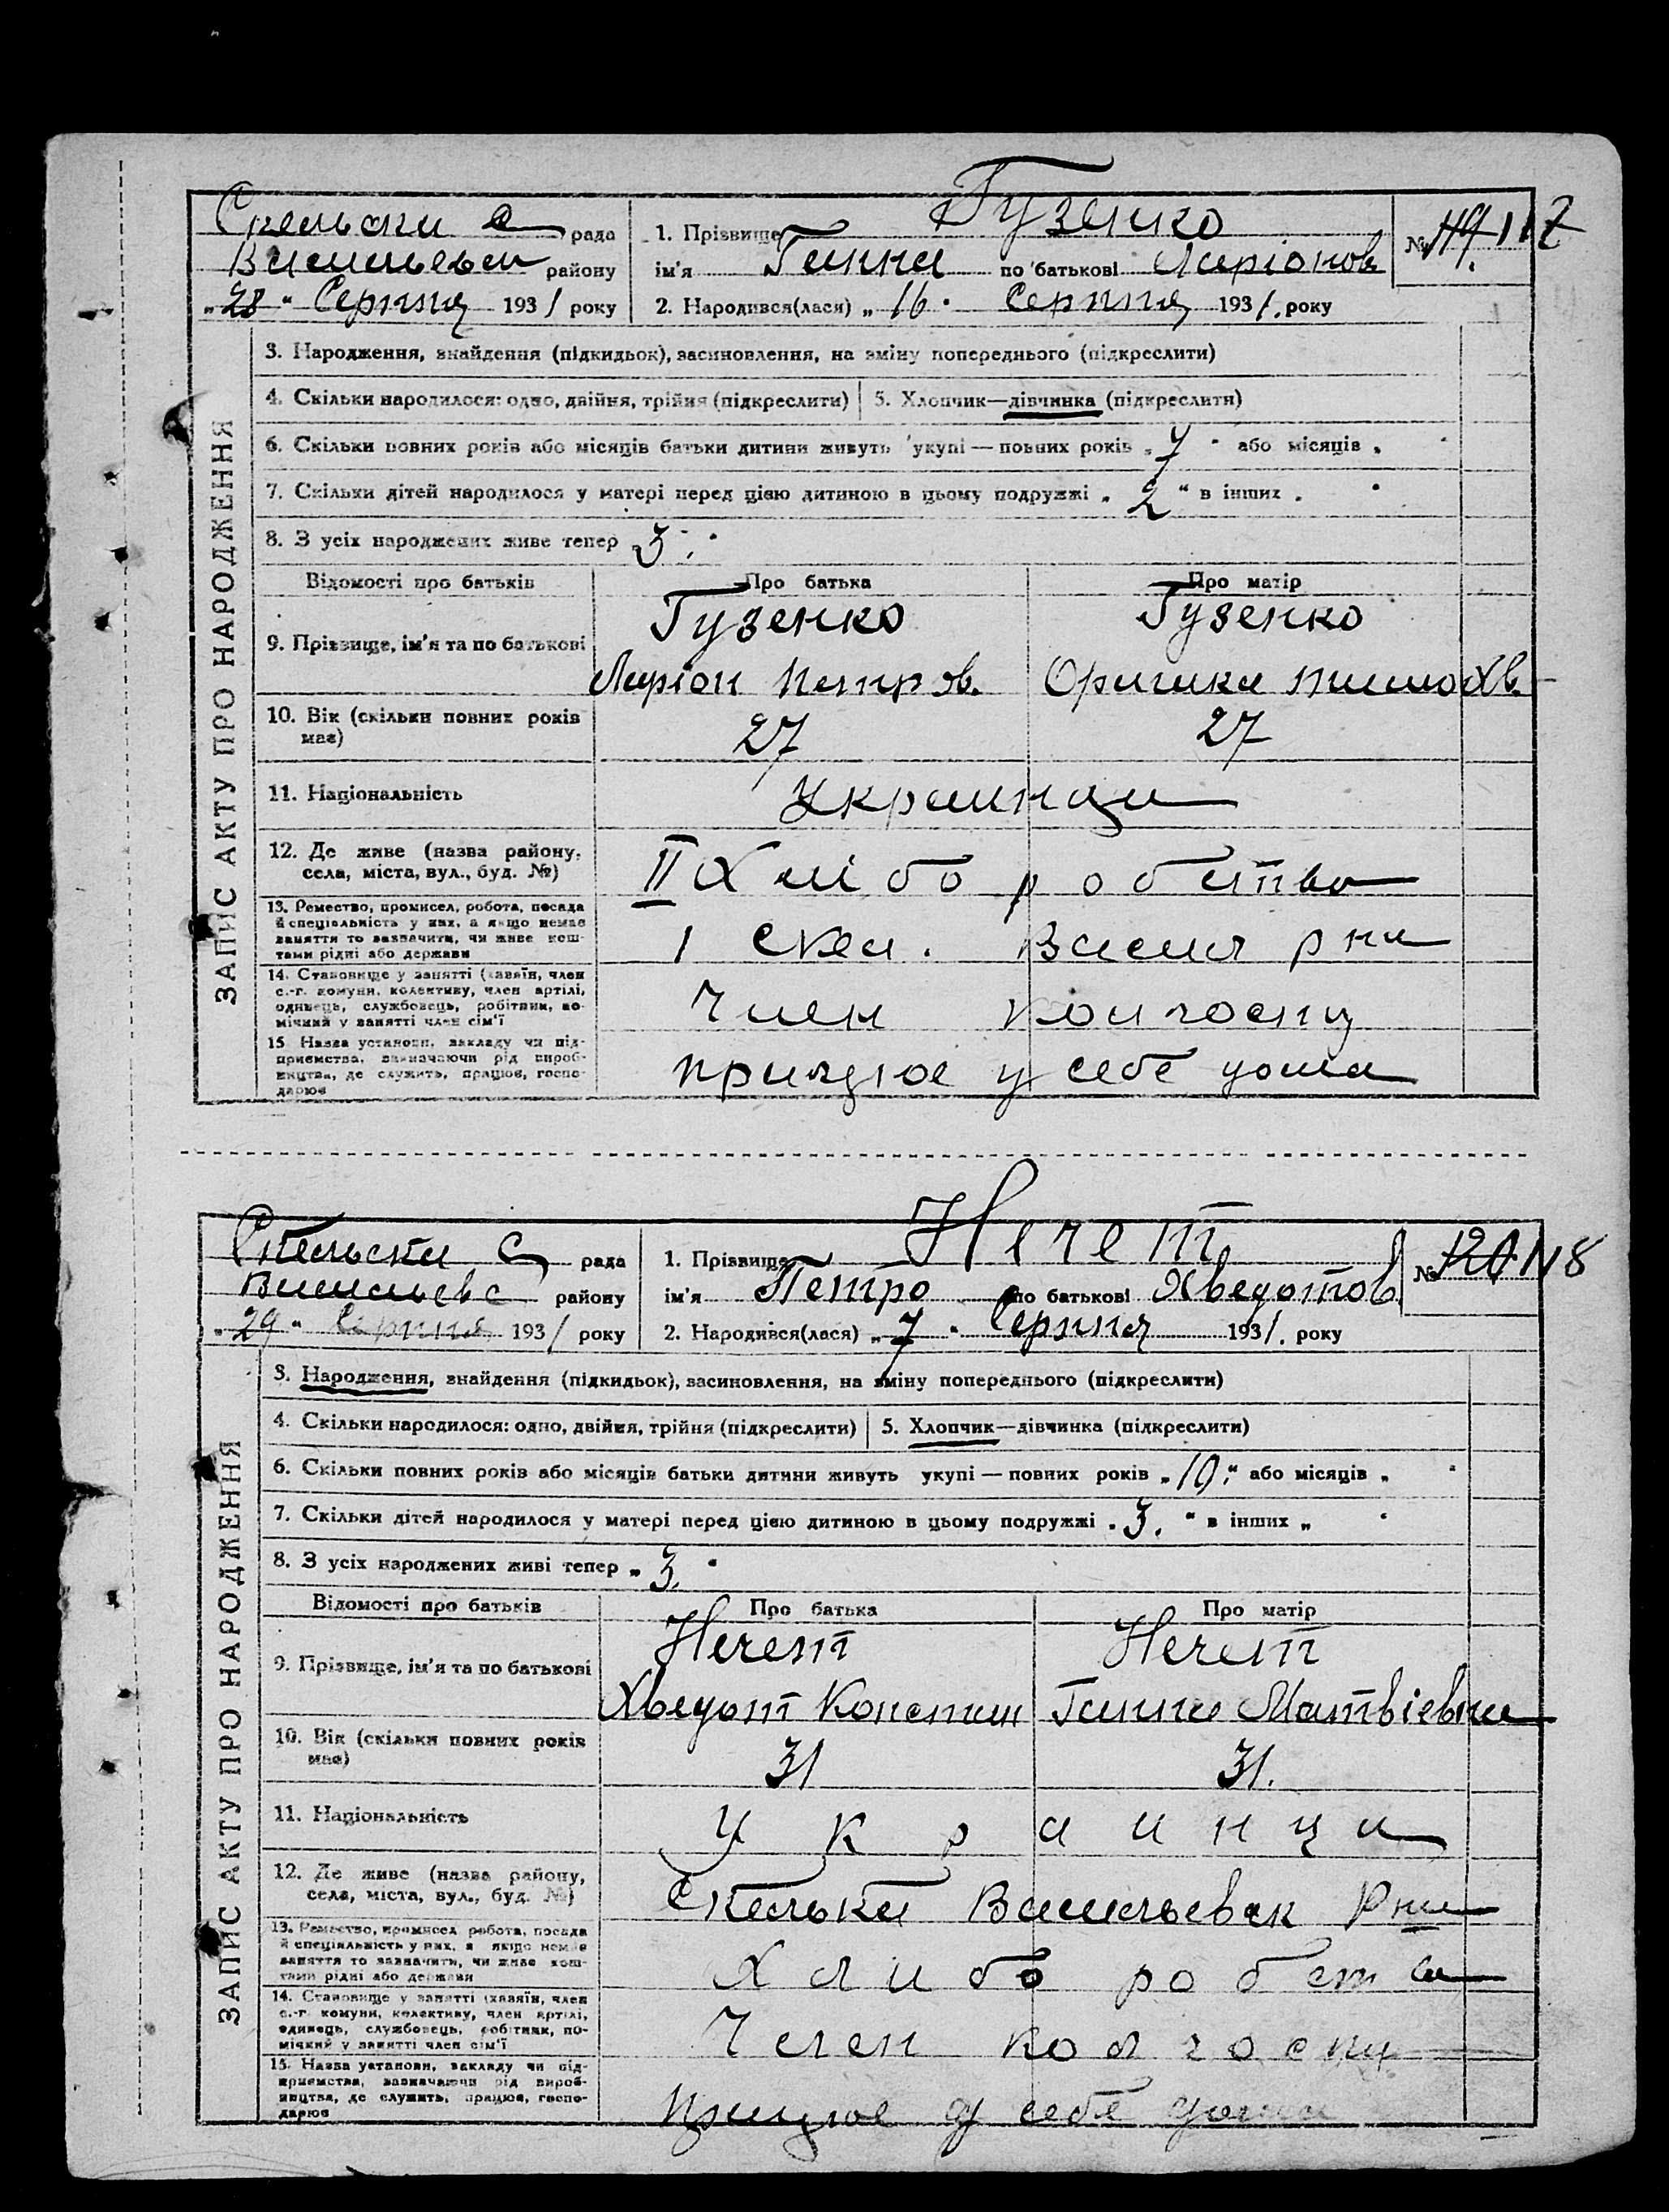 Гузенко
Скельски с рада
1. Прізвище
№ 117
Васильевск району
ім'я Ганна по батькові Ларіонов
„28“ Серпня 1931 року
2. Народився(лася) „16“ Серпня 1931. року
ЗАПИС АКТУ ПРО НАРОДЖЕННЯ
3. Народження, знайдення (підкидьок), засиновлення, на зміну попереднього (підкреслити)
4. Скільки народилося: одно, двійня, трійня (підкреслити) 5. Хлопчик—дівчинка (підкреслити)
6. Скільки повних років або місяців батьки дитини живуть укупі — повних років „7“ або місяців „ “
7. Скільки дітей народилося у матері перед цією дитиною в цьому подружжі „2“ в інших „ “
8. З усіх народжених живе тепер „3“
Відомості про батьків Про батька Про матір
9. Прізвище, ім'я та по батькові
Гузенко Гузенко
Ларіон Петров. Оришка Тимохв.
10. Вік (скільки повних років має)
27 27
11. Національність
Украинци
12. Де живе (назва району, села, міста, вул., буд. №)
II Хлібороб
13. Ремество, промисел, робота, посада й спеціяльність у них, а якщо немає заняття то зазначити, чи живе коштами рідні або держави
I Скел. Васил рна
14. Становище у занятті (хазяїн, член с.-г. комуни, колективу, член артілі, одинець, службовець, робітник, помічний у занятті член сім'ї
Член колгоспу
15. Назва установи, закладу чи підприємства, зазначаючи рід виробництва, де служить, працює, господарює
працюе у себе дома
Нечет
Скельски с рада
1. Прізвище
№ 118
Васильевс району
ім'я Петро по батькові Хведотов
„29“ Серпня 1931 року
2. Народився(лася) „7“ Серпня 1931. року
ЗАПИС АКТУ ПРО НАРОДЖЕННЯ
3. Народження, знайдення (підкидьок), засиновлення, на зміну попереднього (підкреслити)
4. Скільки народилося: одно, двійня, трійня (підкреслити) 5. Хлопчик—дівчинка (підкреслити)
6. Скільки повних років або місяців батьки дитини живуть укупі — повних років „10“ або місяців „ “
7. Скільки дітей народилося у матері перед цією дитиною в цьому подружжі „3.“ в інших „ “
8. З усіх народжених живі тепер „3.“
Відомості про батьків Про батька Про матір
9. Прізвище, ім'я та по батькові
Нечет Нечет
Хведот Констан Ганна Матвіевна
10. Вік (скільки повних років має)
31 31.
11. Національність
украинци
12. Де живе (назва району, села, міста, вул., буд. №)
Скельки Васильевск Рна
13. Ремество, промисел робота, посада й спеціяльність у них, а якщо немає заняття то зазначити, чи живе коштами рідні або держави
Хлибороб
14. Становище у занятті (хазяїн, член с.-г. комуни, колективу, член артілі, одинець, службовець, робітник, помічний у занятті член сім'ї
Член колгоспу
15. Назва установи, закладу чи підприємства, зазначаючи рід виробництва, де служить, працює, господарює
працюе у себе дома